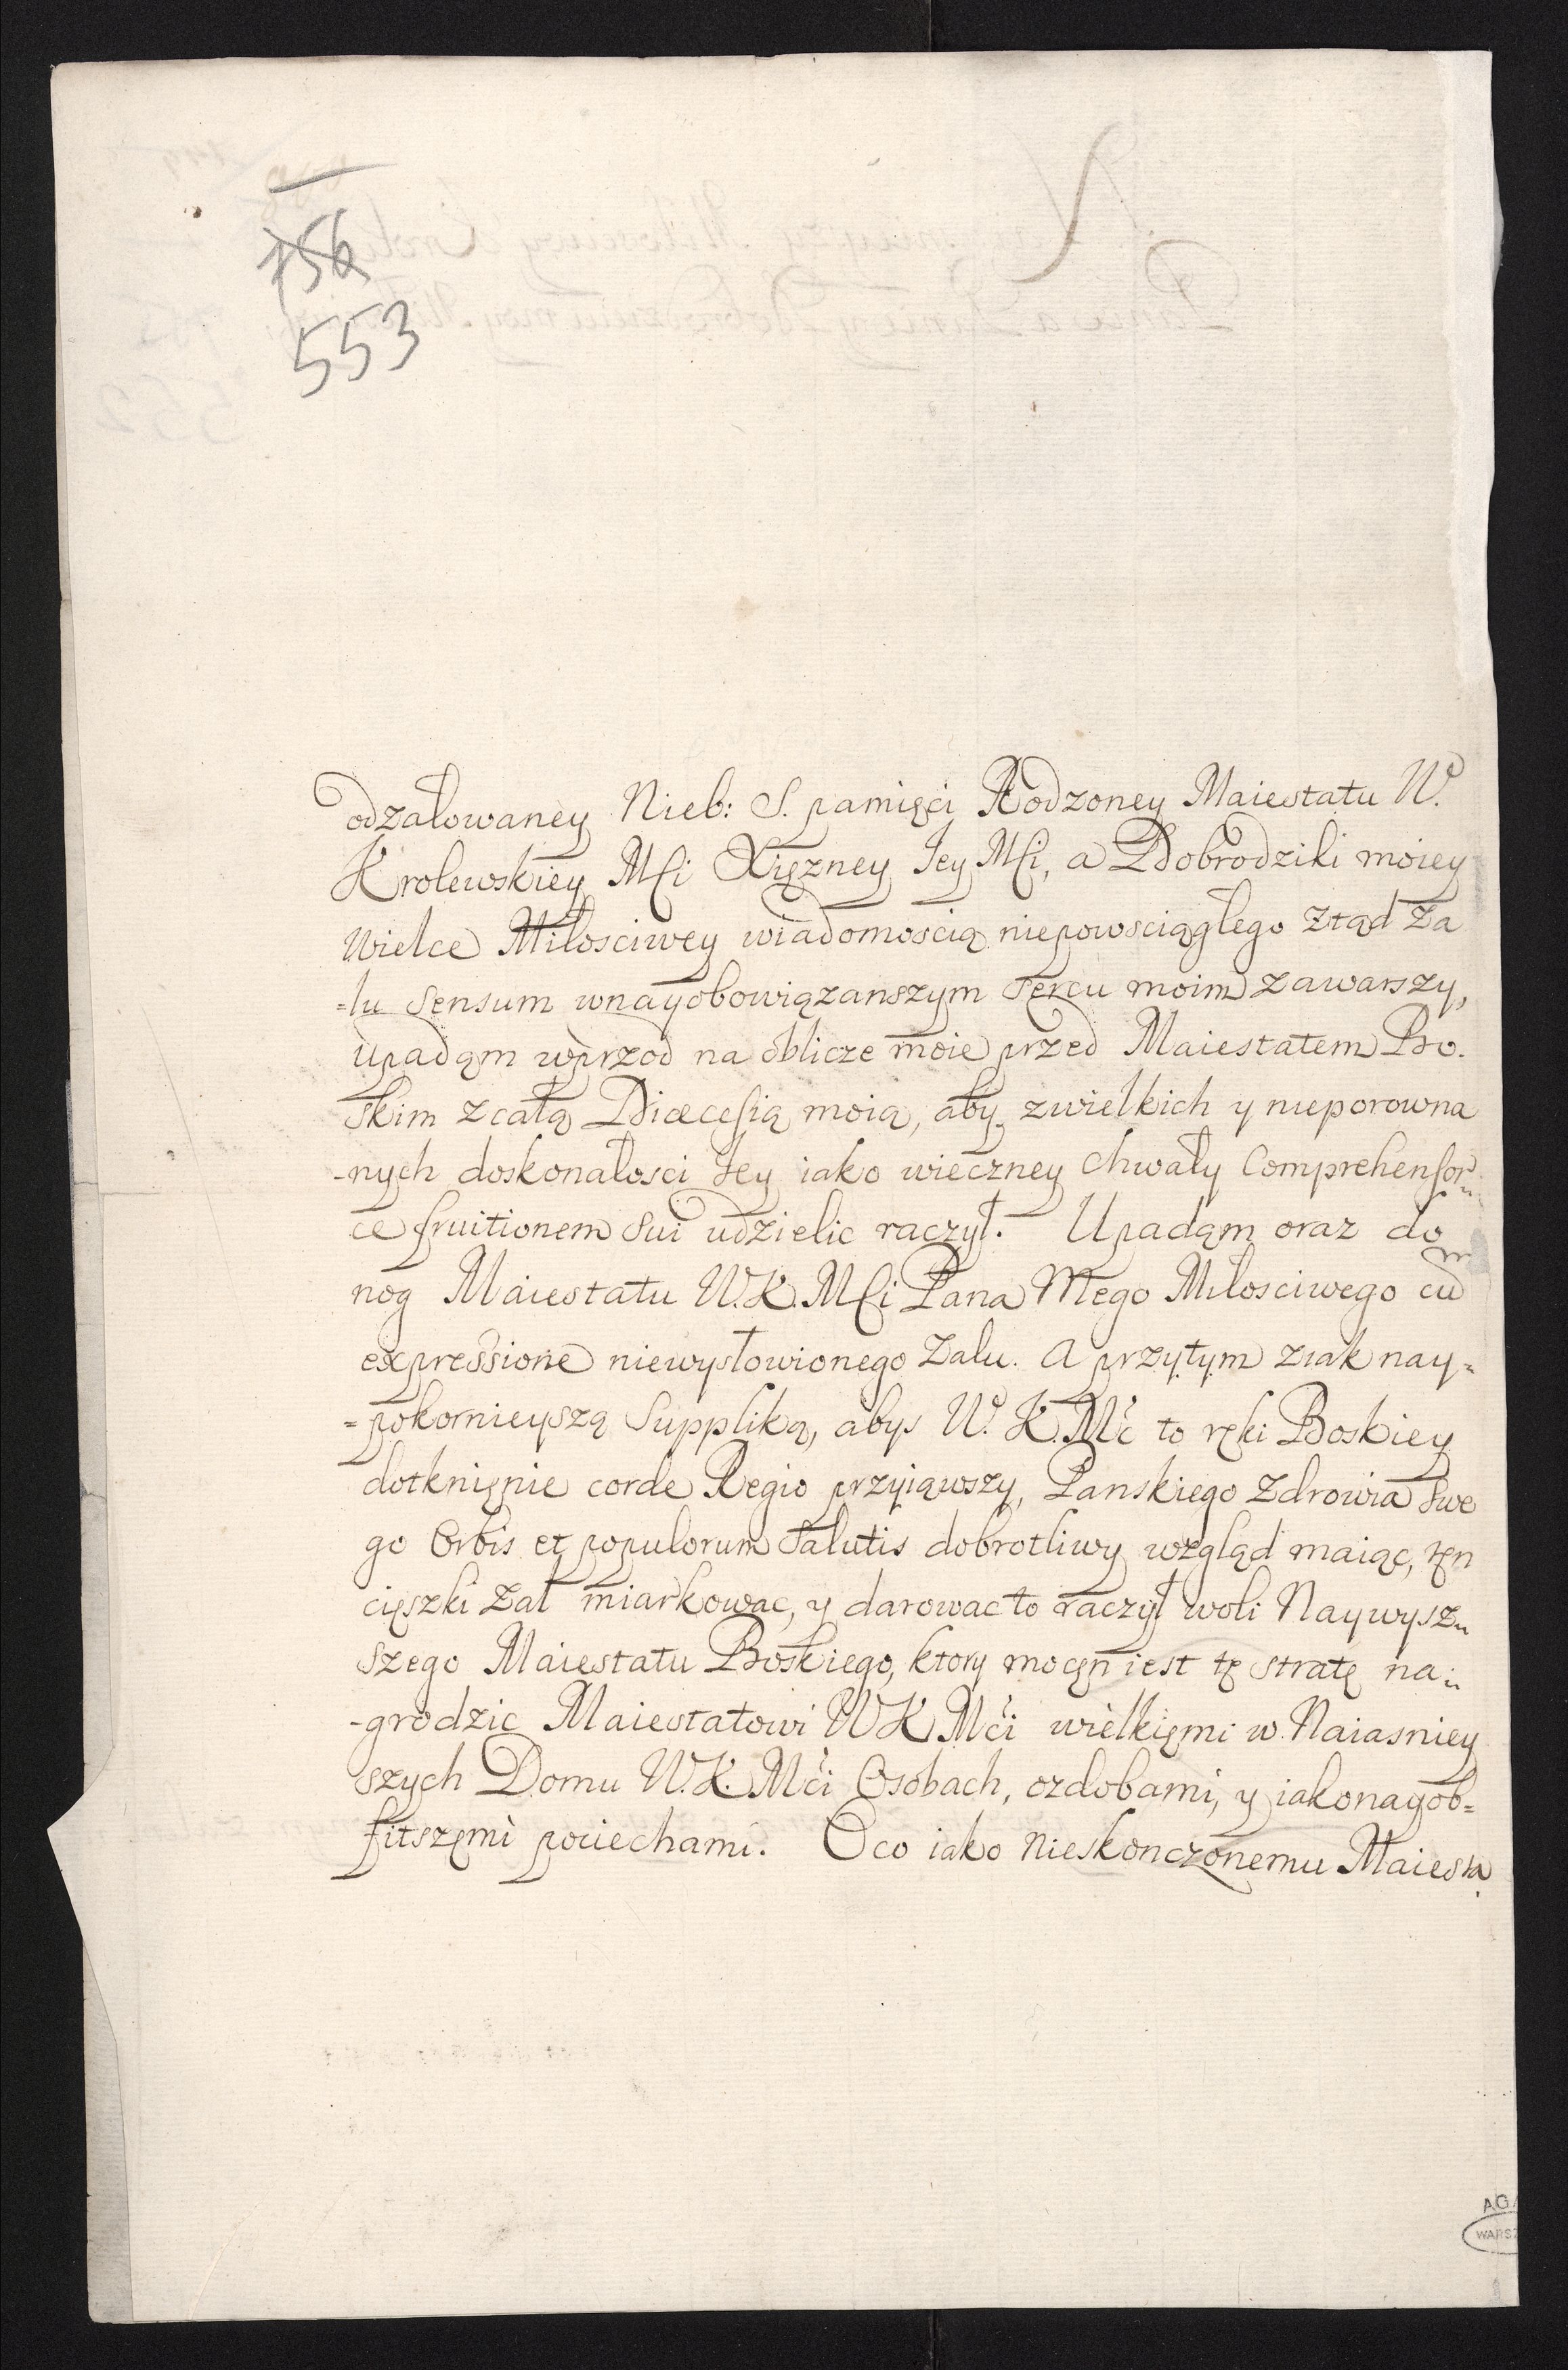 756
553
odzałowaney Nieb: S. pamięci Rodzoney Maiestatu W.
Krolewskiey Mści Xięzney Jey Mści, a Dobrodziki moiey
Wielce Miłosciwey wiadomoscią niepowsciągłego ztąd za
=lu sensum wnayobowiązanszym sercu moim zawarszy,
upadąm wprzod na oblicze moie przed Maiestatem Bo.
skim zcałą Diœcesią moią, aby zwielkich y nieporowna
-nych doskonałosci Jey iako wieczney chwały Comprehensor
ce fruitionem sui udzielic raczył. Upadąm oraz do
nog Maiestatu W.K. Mści Pana Mego Miłosciwego cum
expressione niewysłowionego zalu. A przytym ziak nay=
=pokornieyszą Suppliką, abys W. K. Mć to ręki Boskiey
dotknięnie corde Regio przyiąwszy, Panskiego Zdrowia swe
go Orbis et populorum Salutis dobrotliwy wzgląd maiąc, tęn
cięszki zal miarkowac, y darowac to raczył woli Naywysz=
szego Maiestatu Boskiego, ktory mocęn iest tę stratę na=
-grodzic Maiestatowi WK Mći wielkięmi w Naiasniey
szych Domu W.K. Mći Osobach, ozdobami, y iakonayob=
fitszęmi pociechami. Oco iako Nieskonczonemu Maiesta
AGA
WARSZ